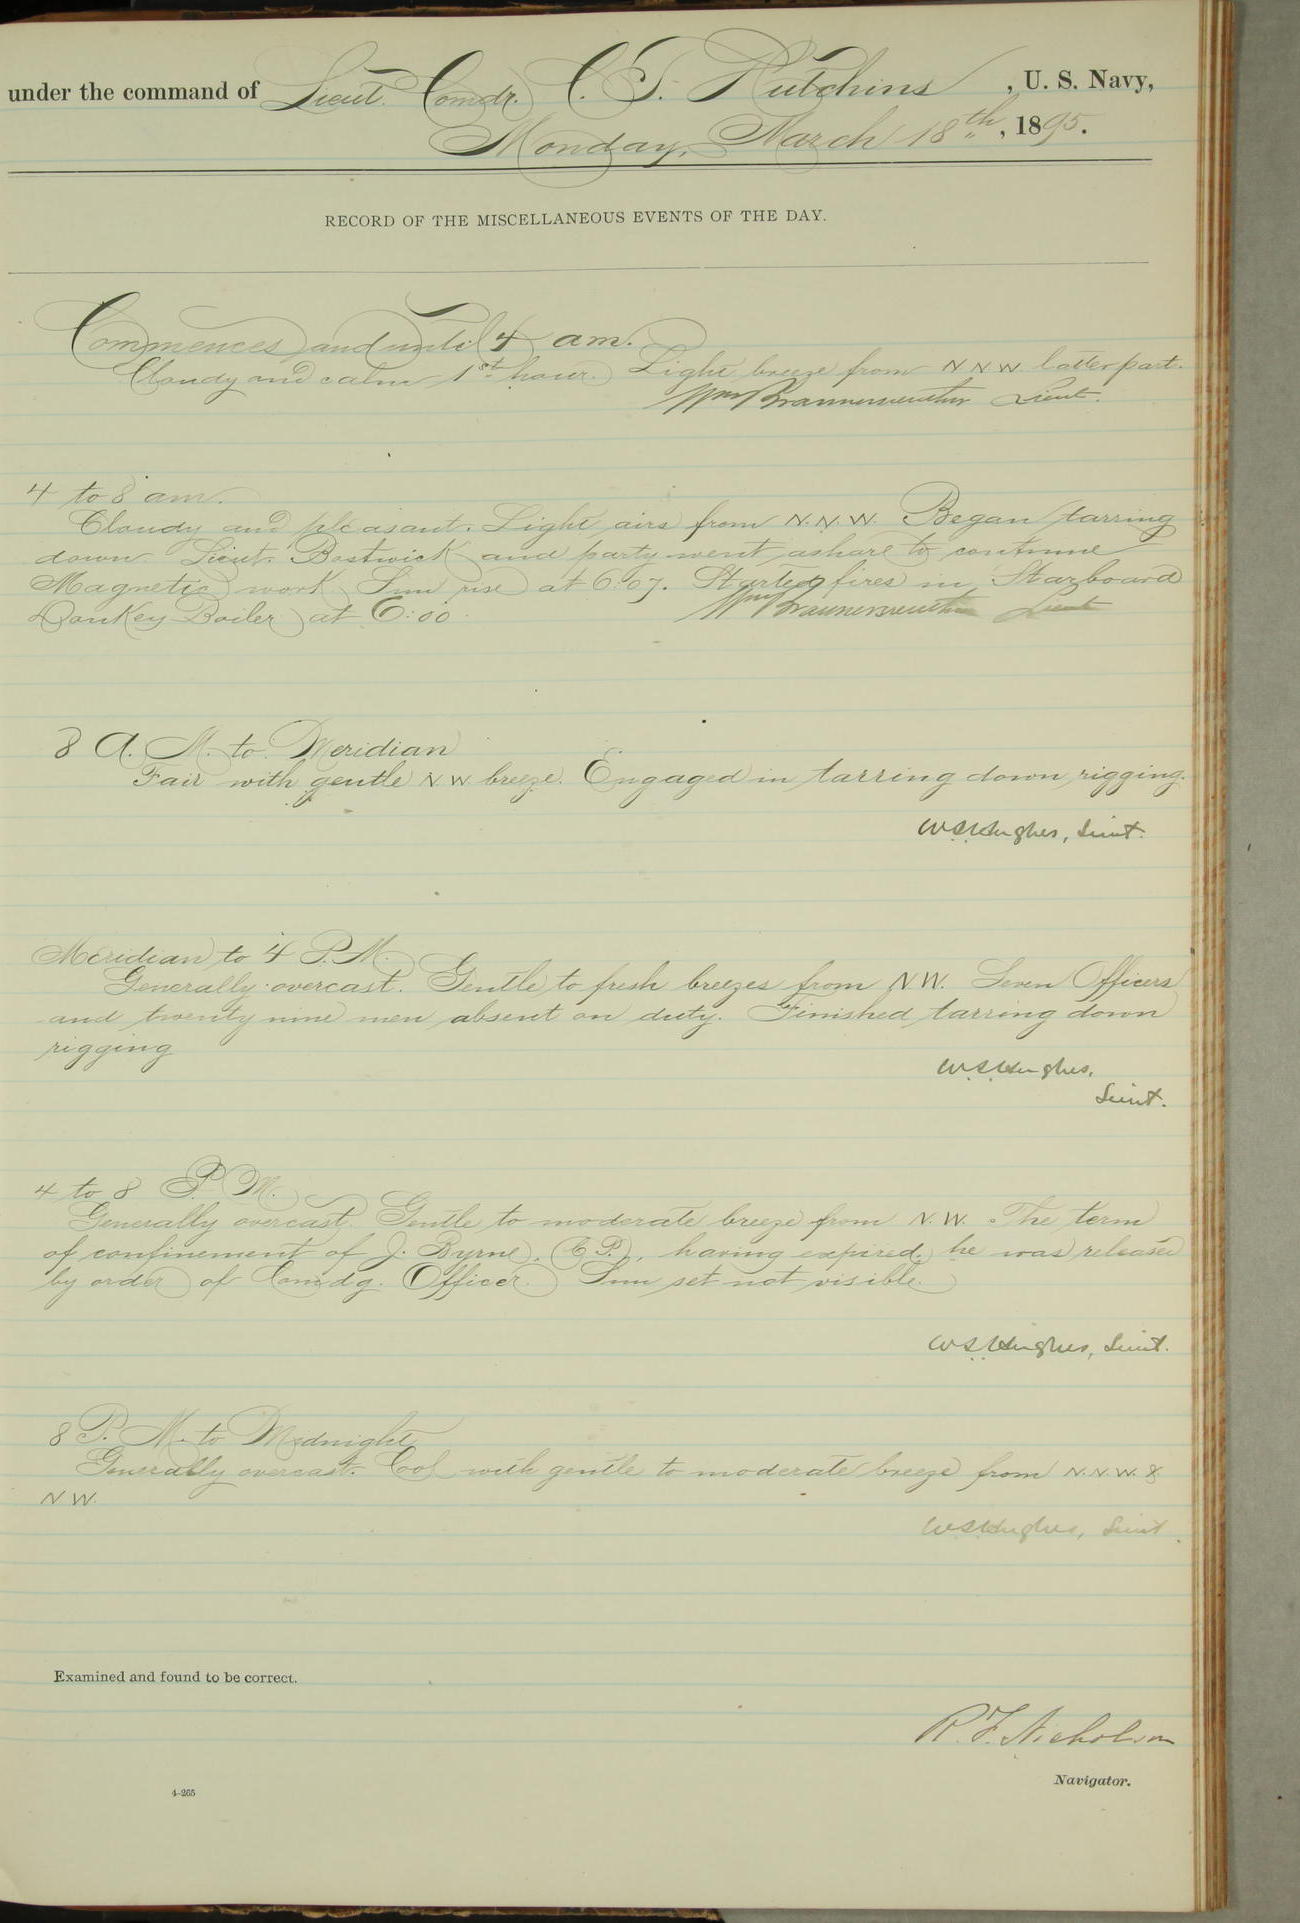 under the command of Lieut. Comdr. C. T. Hutchins, U. S. Navy,
Monday, March 18th, 1895.
RECORD OF THE MISCELLANEOUS EVENTS OF THE DAY.
Commences and until 4 am.
Cloudy and calm 1st hour. Light breeze from N N W latter part.
Wm Braunersreuther Lieut.
4 to 8 am.
Cloudy and pleasant. Light airs from N. N. W. Began tarring
down. Lieut. Bostwick and party went ashore to continue
Magnetic work Sun rise at 6:07. Started fires in Starboard
Donkey Boiler at 6:00
Wm Braunersreuther Lieut
8 A. M. to Meridian
Fair with gentle N W breeze. Engaged in tarring down rigging.
W S Hughes, Lieut.
Meridian to 4 P. M.
Generally overcast. Gentle to fresh breezes from N W. Seven Officers
and twenty nine men absent on duty. Finished tarring down
rigging
W. S. Hughes,
Lieut.
4 to 8 P. M.
Generally overcast. Gentle to moderate breeze from N. W. The term
of confinement of J. Byrne, (C. P.), having expired, he was released
by order of Comdg. Officer. Sun set not visible.
W S Hughes, Lieut.
8 P. M. to Midnight
Generally overcast. Cool with gentle to moderate breeze from N. N. W. &
N W.
W S Hughes, Lieut.
Examined and found to be correct.
R. F. Nicholson
Navigator.
4-265